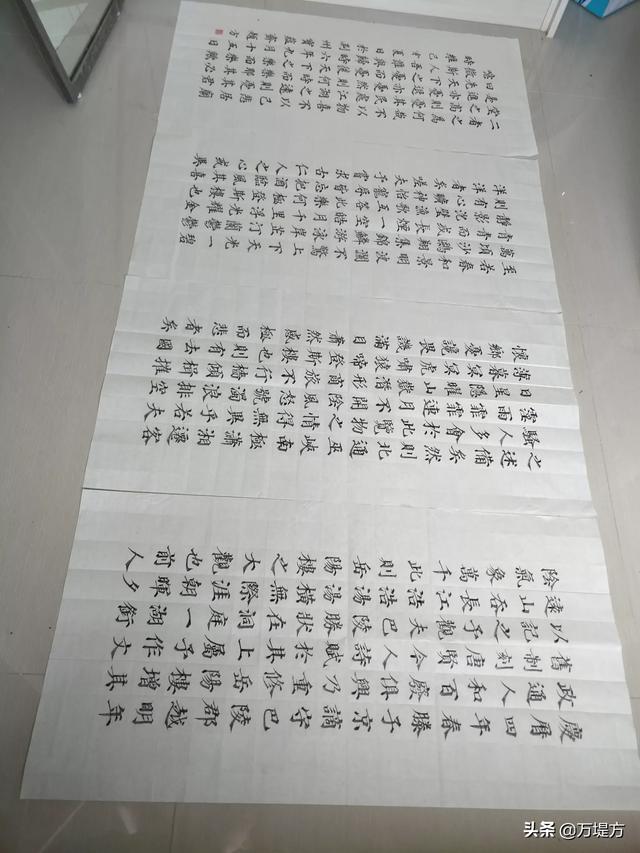 慶曆四年春滕子京謫守巴陵郡越明年
政通人和百廢俱興乃重修岳陽樓增其
舊制刻唐賢今人詩賦於其上屬予作文
以記之予觀夫巴陵勝狀在洞庭一湖銜
遠山吞長江浩浩湯湯橫無際涯朝暉夕
陰氣象萬千此則岳陽樓之大觀也前人
之述備矣然則北通巫峽南極瀟湘遷客
騷人多會於此覽物之情得無異乎若夫
霪雨霏霏連月不開陰風怒號濁浪排空
日星隱曜山嶽潛形商旅不行檣傾楫摧
薄暮冥冥虎嘯猿啼登斯樓也則有去國
懷鄉憂讒畏譏滿目蕭然感極而悲者矣
至若春和景明波瀾不驚上下天光一碧
萬頃沙鷗翔集錦鱗游泳岸芷汀蘭鬱鬱
青青而或長煙一空皓月千里浮光耀金
靜影沉璧漁歌互答此樂何極登斯樓也
則有心曠神怡寵辱皆忘把酒臨風其喜
洋洋者矣嗟夫予嘗求古仁人之心或異
二者之為何哉不以物喜不以己悲居廟
堂之高則憂其民處江湖之遠則憂其君
是進亦憂退亦憂然則何時而樂耶其必
曰先天下之憂而憂後天下之樂而樂
噫微斯人吾誰與歸時六年九月十五日
头条 @万堤方